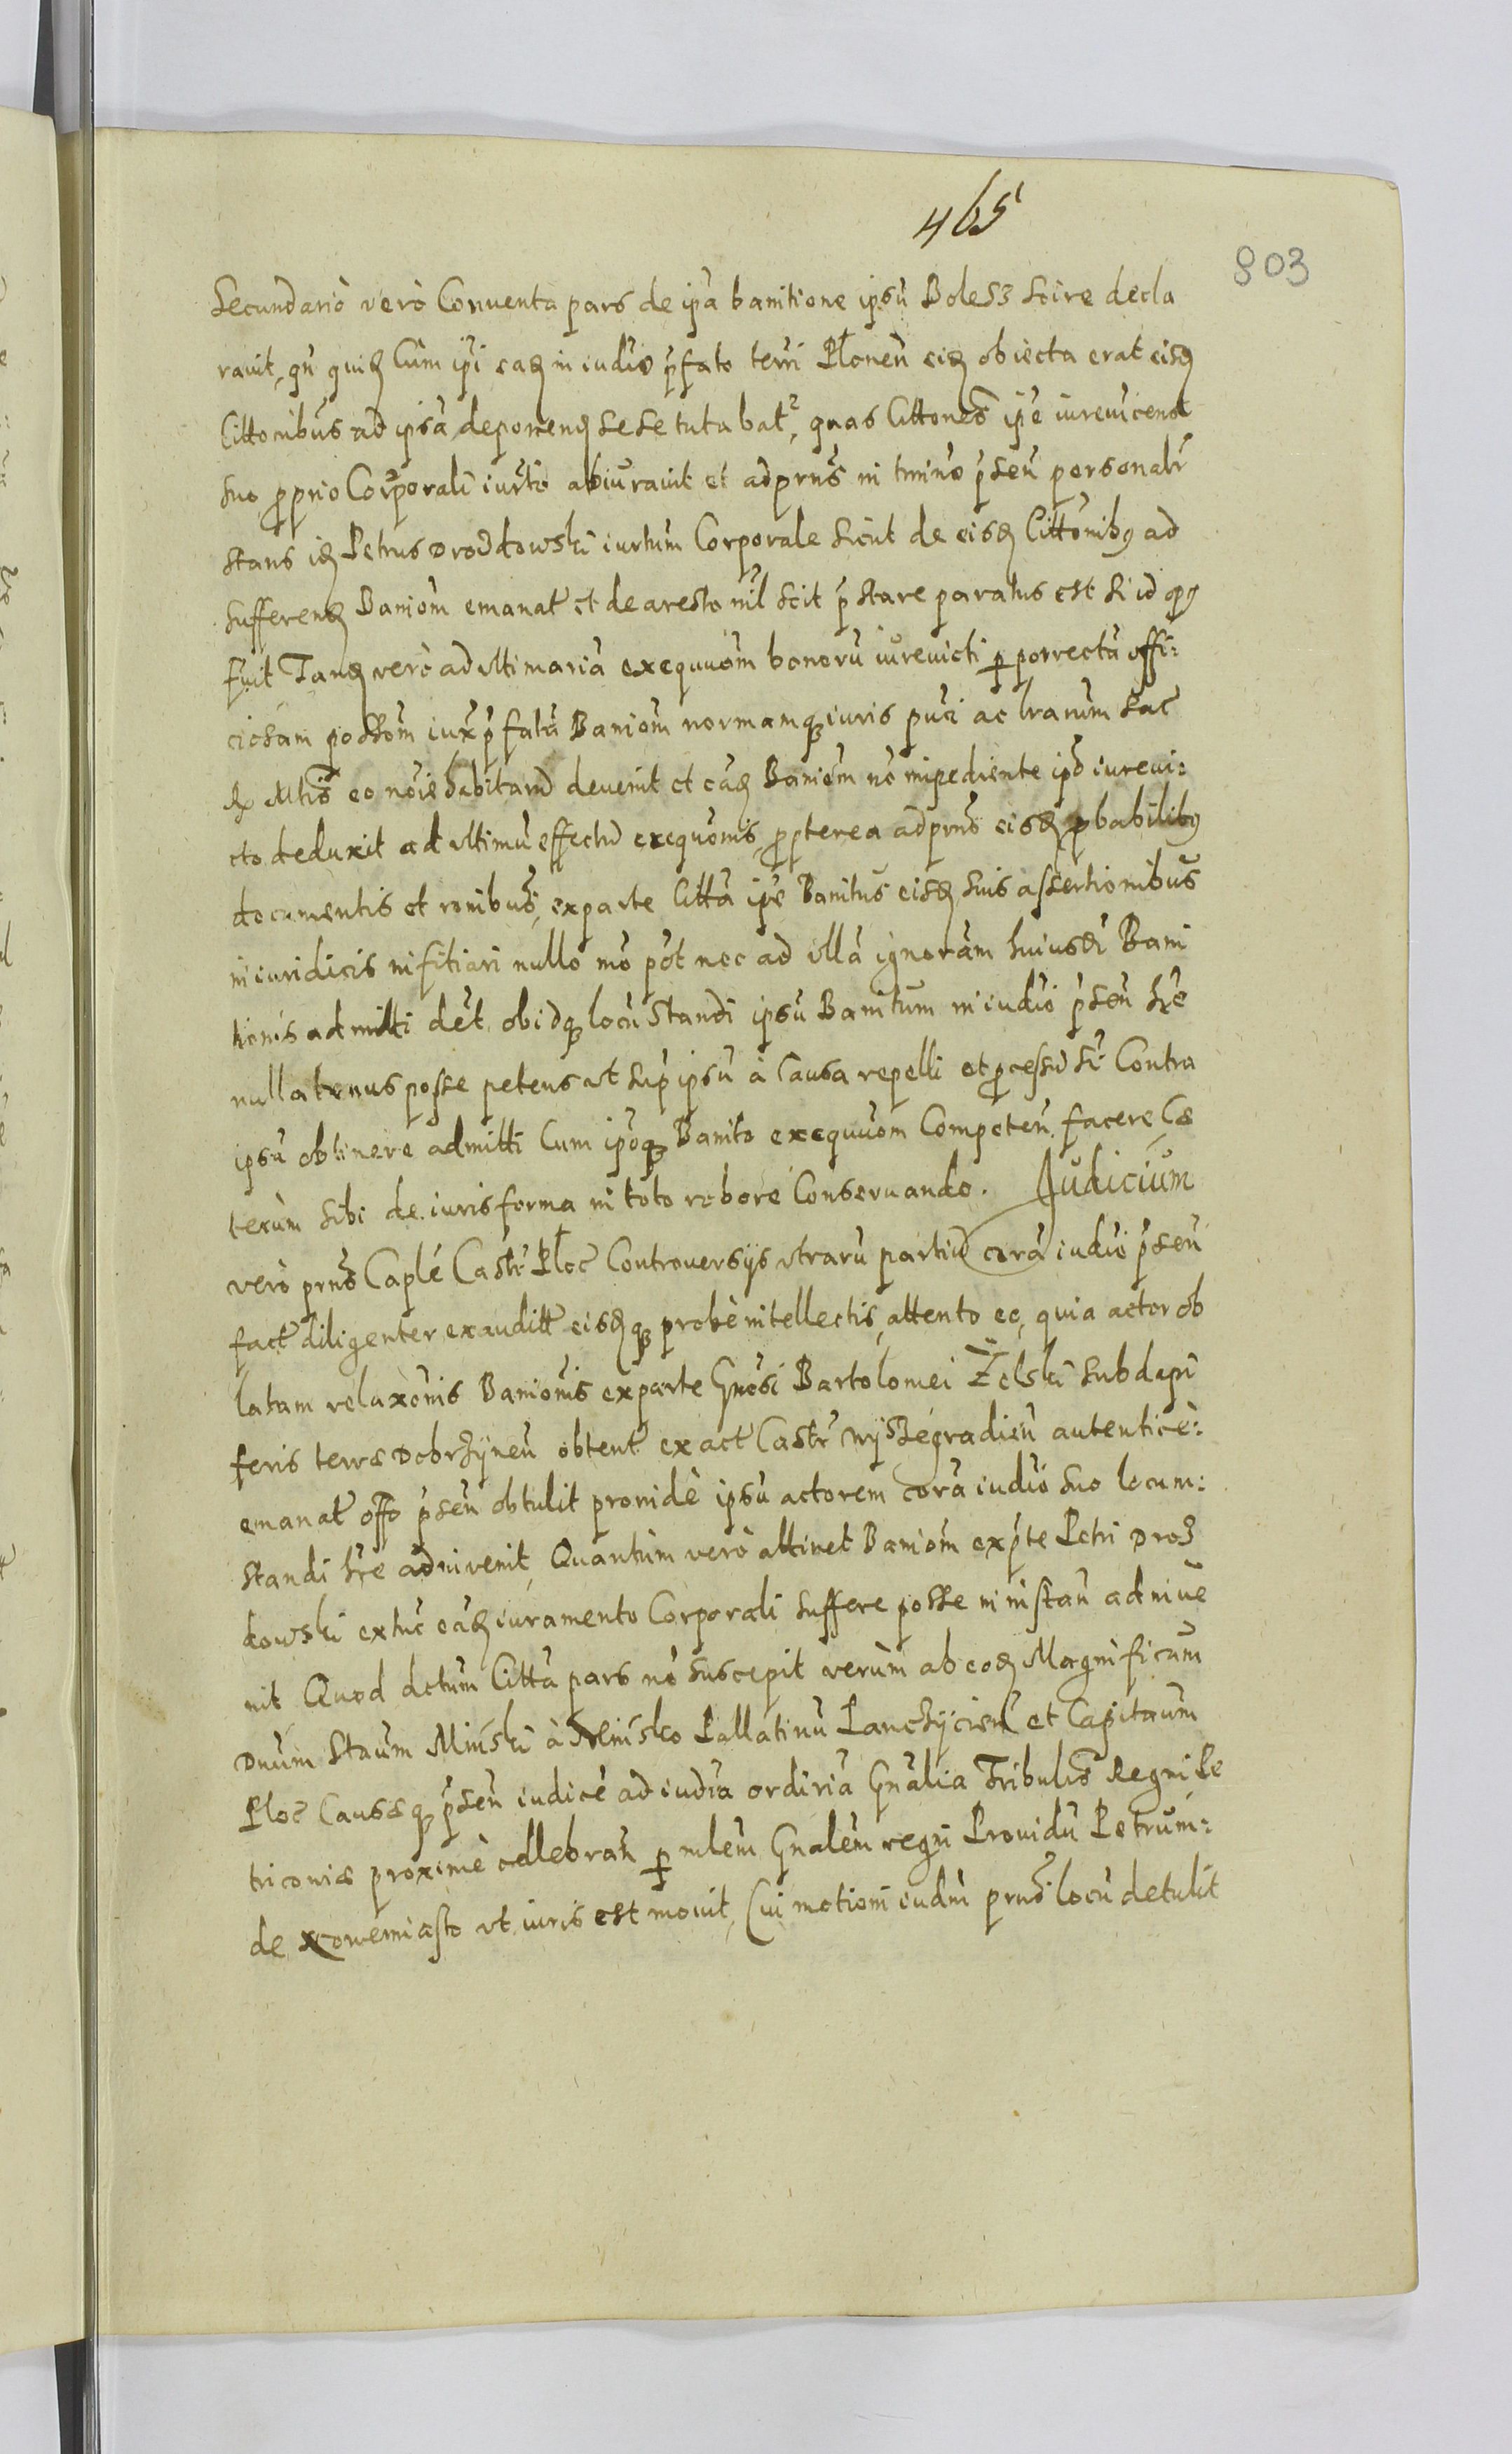 465
803
Secundario verò Conventa pars de ipa banitione ipsu Bolesz scire decla
ravit, qn quid Cum ipi ead in iudio pfato terri Płonen eid obiecta erat eisd
Cittonibus ad ipsa deponend sese tutabat, quas Cittones ipe iurevicens
suo proprio Corporali iurto abiuravit et ad prns in tmino psen personalr
stans id Petrus Drozdowski iurtum Corporale sicut de eisd Cittonibq ad
sufferend Baniom emanat et de aresto nil scit pstare paratus est si id
fuit Tand verò ad ultimaria exequuom bonoru iurevicti p porrecta offi:
ciosam possom iux pfata Baniom normamq iuris puci ac lrarum Sac
R Mtis eo noie habitaru devenit et ead Baniom no inpediente ipo iurevi:
cto deduxit ad ultimu effectu exequonis, propterea ad prns eisd pbabilibq
documentis et ronibus, exparte Citta ipe Banitus eisd suis assertionibus
in iuridicis infitiari nullo mo pot nec ad ulla ignoram huiusdi Bani
tionis admitti det, obidq locu standi ipsu Banitum in iudio psen hre
nullatenus posse petens ut sup ipsu à Causa repelli et processu sr Contra
ipsu obtinere admitti Cum ipoq Banito exequuom Competen facere, Cæ
terùm sibi de iuris forma in toto robore Conservando. Judicium
verò prns Caplé Castr Płoc Controversijs utraru partiu cora iudio psen
fact diligenter exauditt eisdq probè intellectis, attento eo, quia actor ob
latam relaxonis Banionis exparte Gnosi Bartolomei Żelski subdapi
feris terræ Dobrzynen obtent ex act Castr Wyszegradien autenticè:
emanat offo psen obtulit provide ipsu actorem cora iudio suo locum:
standi hre adinvenit, Quantùm verò attinet Baniom expte Petri Droz
dowski extuc ead iuramento Corporali suffere posse in instan adinve
nit Quod dctum Citta pars no suscepit verùm ab eod Magnificum
Dnum Staum Miński à Minsko Pallatinu Lanczycien et Capitaum
Ploc Causæq psen iudicé ad iudia ordiria Gnalia Tribulis Regni Pe
triconiæ proximè cellebran p mlem Gnalem regni Providu Petrum:
de Xcowemiasto ut iuris est movit, Cui motioni iudm prns locu detulit